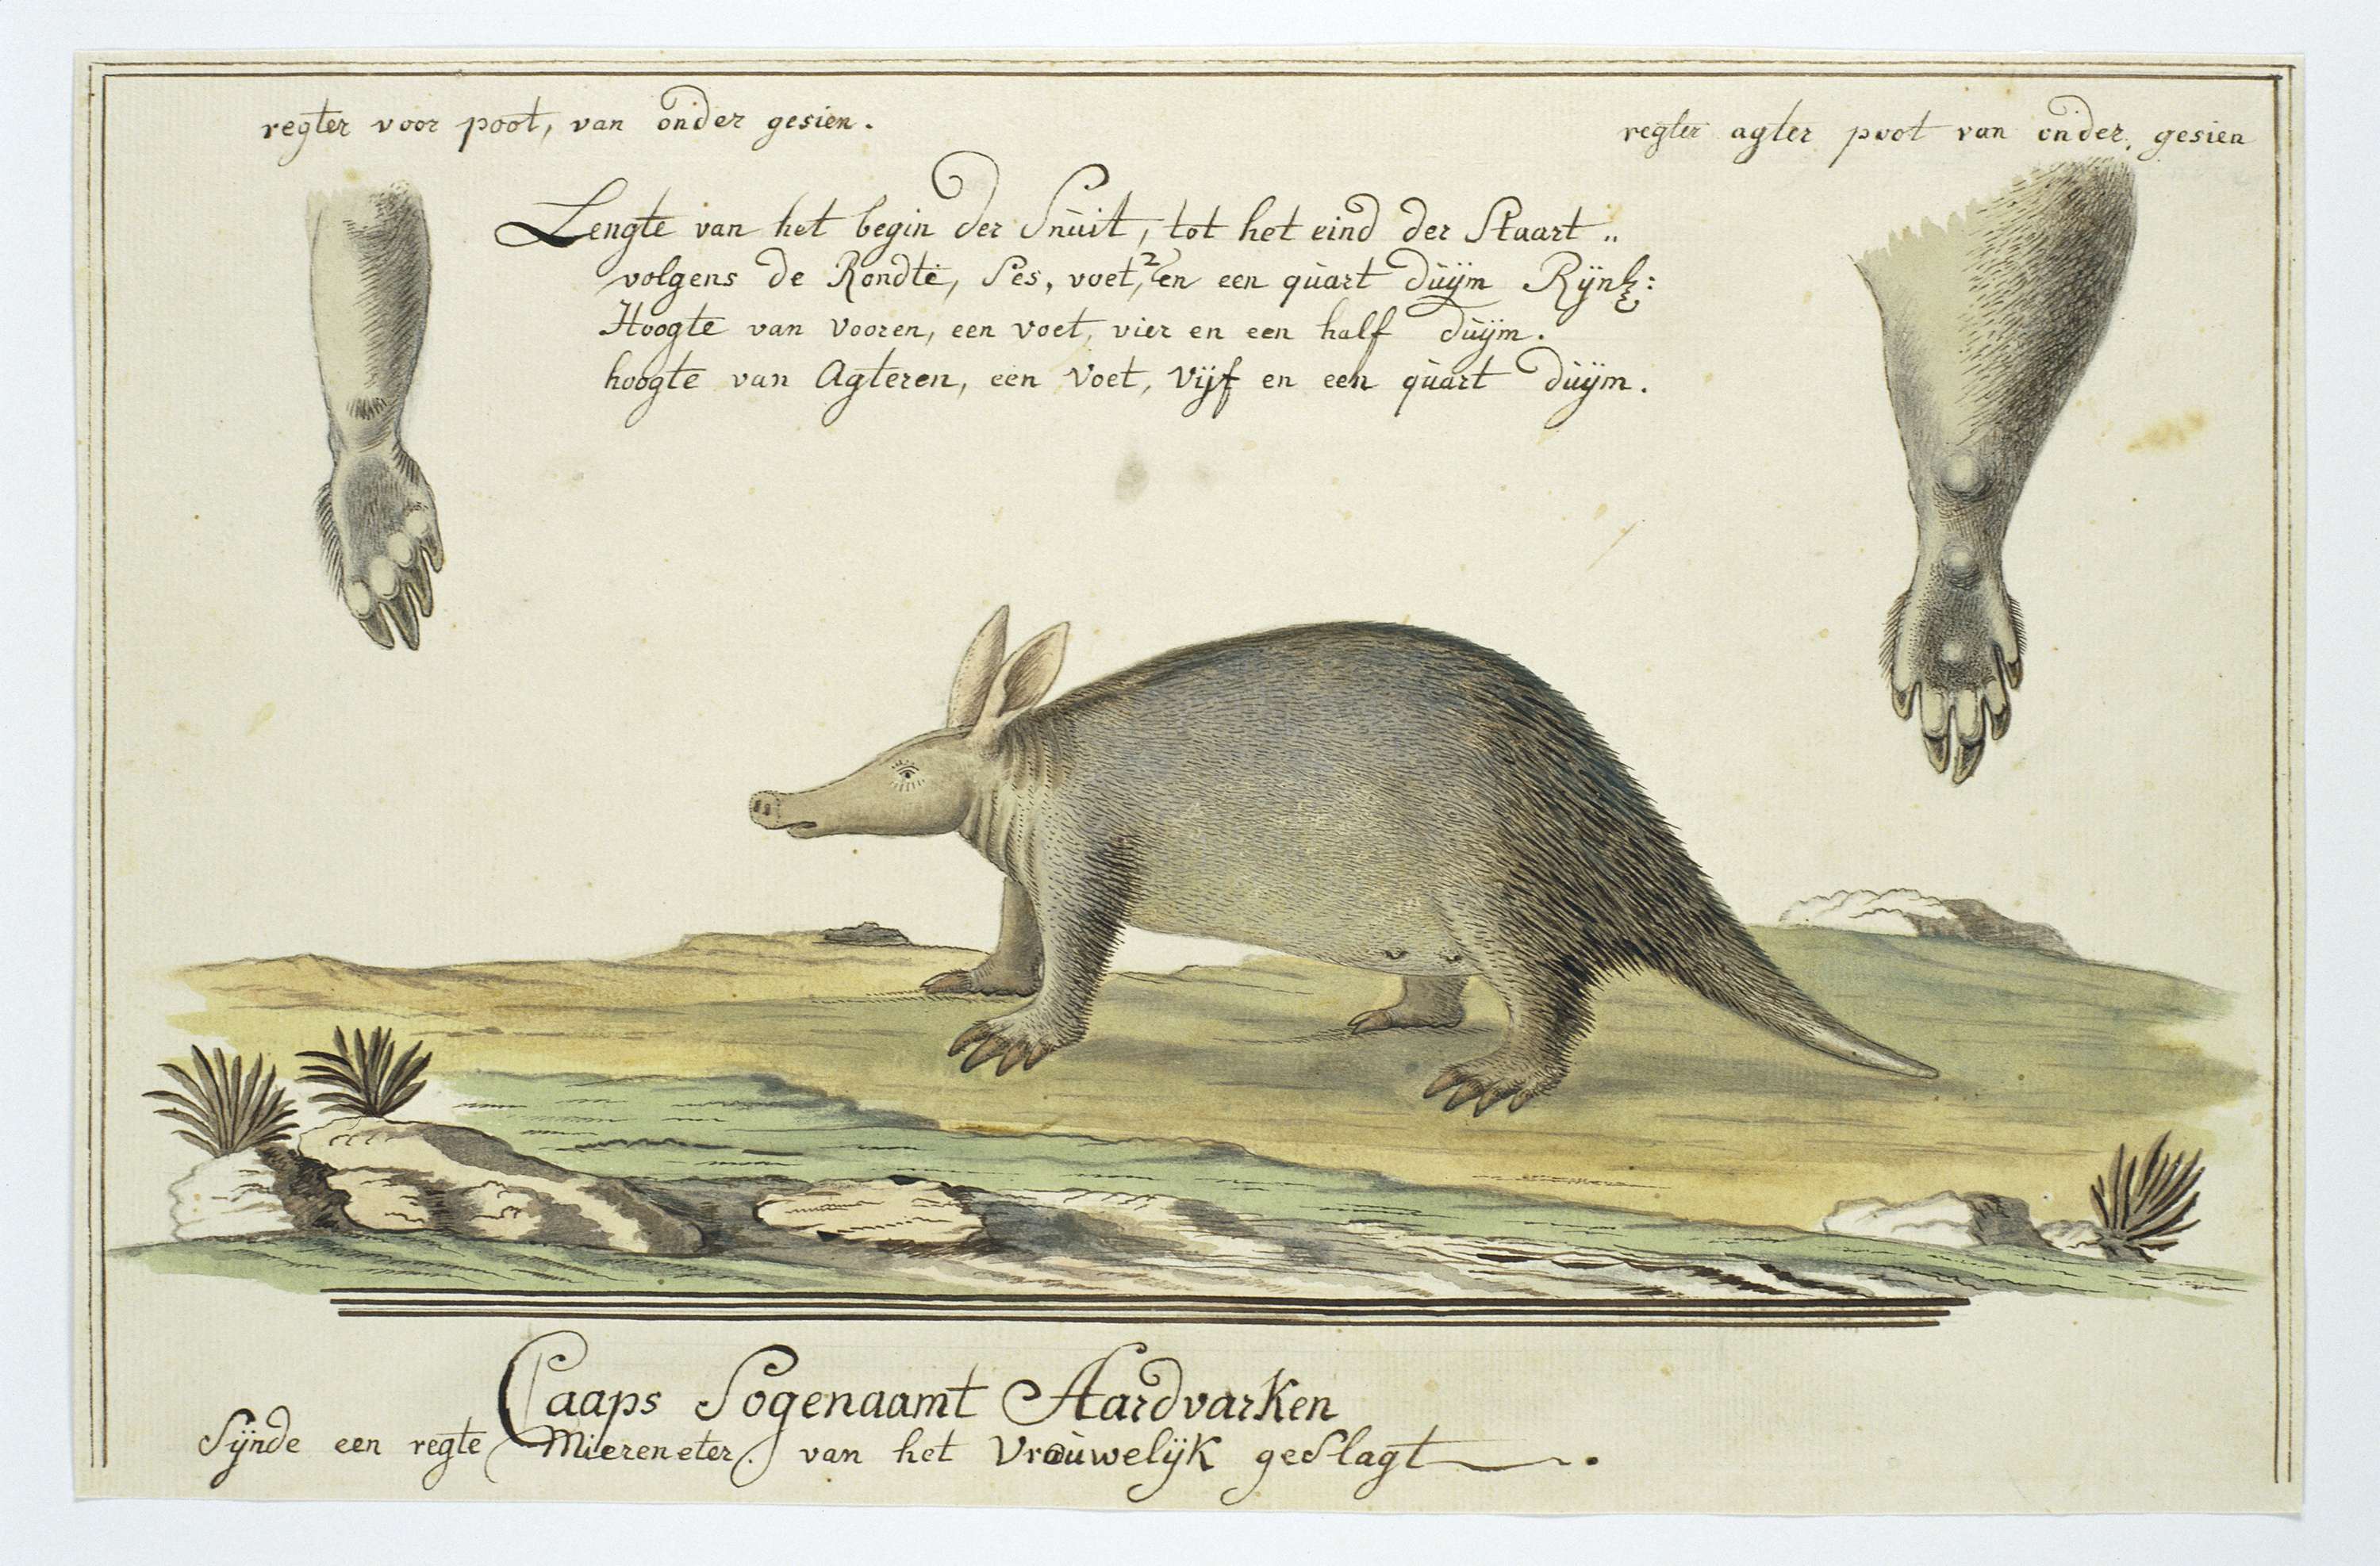 regter voor poot, van onder gesien.
regter agter poot van onder, gesien
Lengte van het begin der Snùit, tot het eind der Staart „
volgens de Rondte, Ses, voet, en een qùart dùÿm Rÿnl:
Hoogte van vooren, een voet, vier en een half dùÿm.
hoogte van Agteren, een voet, vijf en een qùart dùÿm.
Caaps Sogenaamt Aardvarken
Sÿnde een regte Miereneter. van het Vroùwelÿk geslagt.